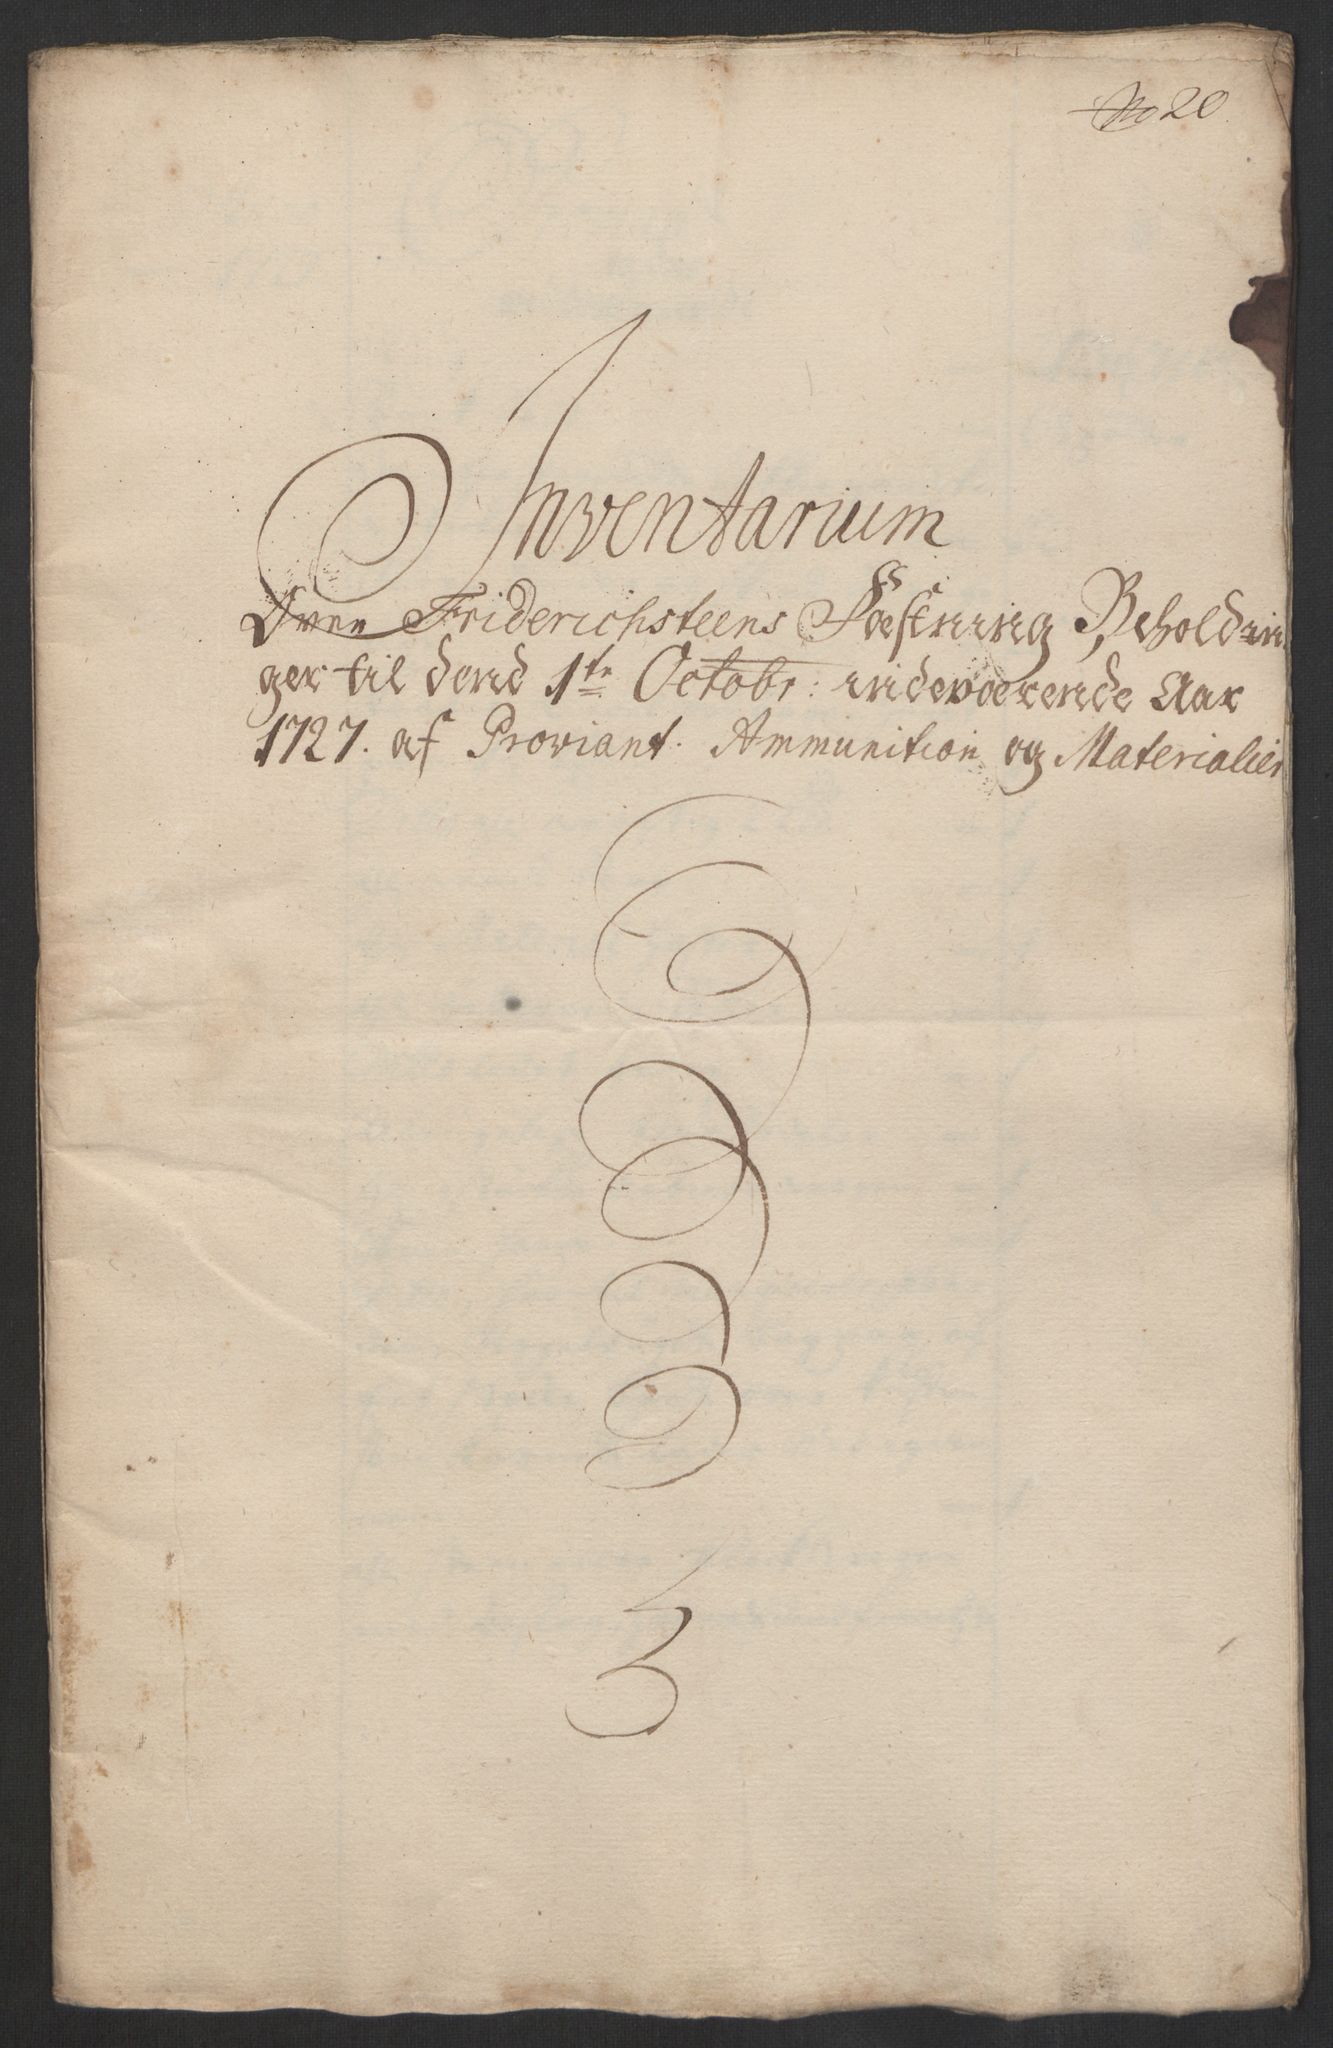 No 20
Inventarium
Over Friderichsteens Fæstning Beholdnin
ger til dend 1te Octobr: indeværende Aar
1727. af Proviant. Ammunition og Materialier